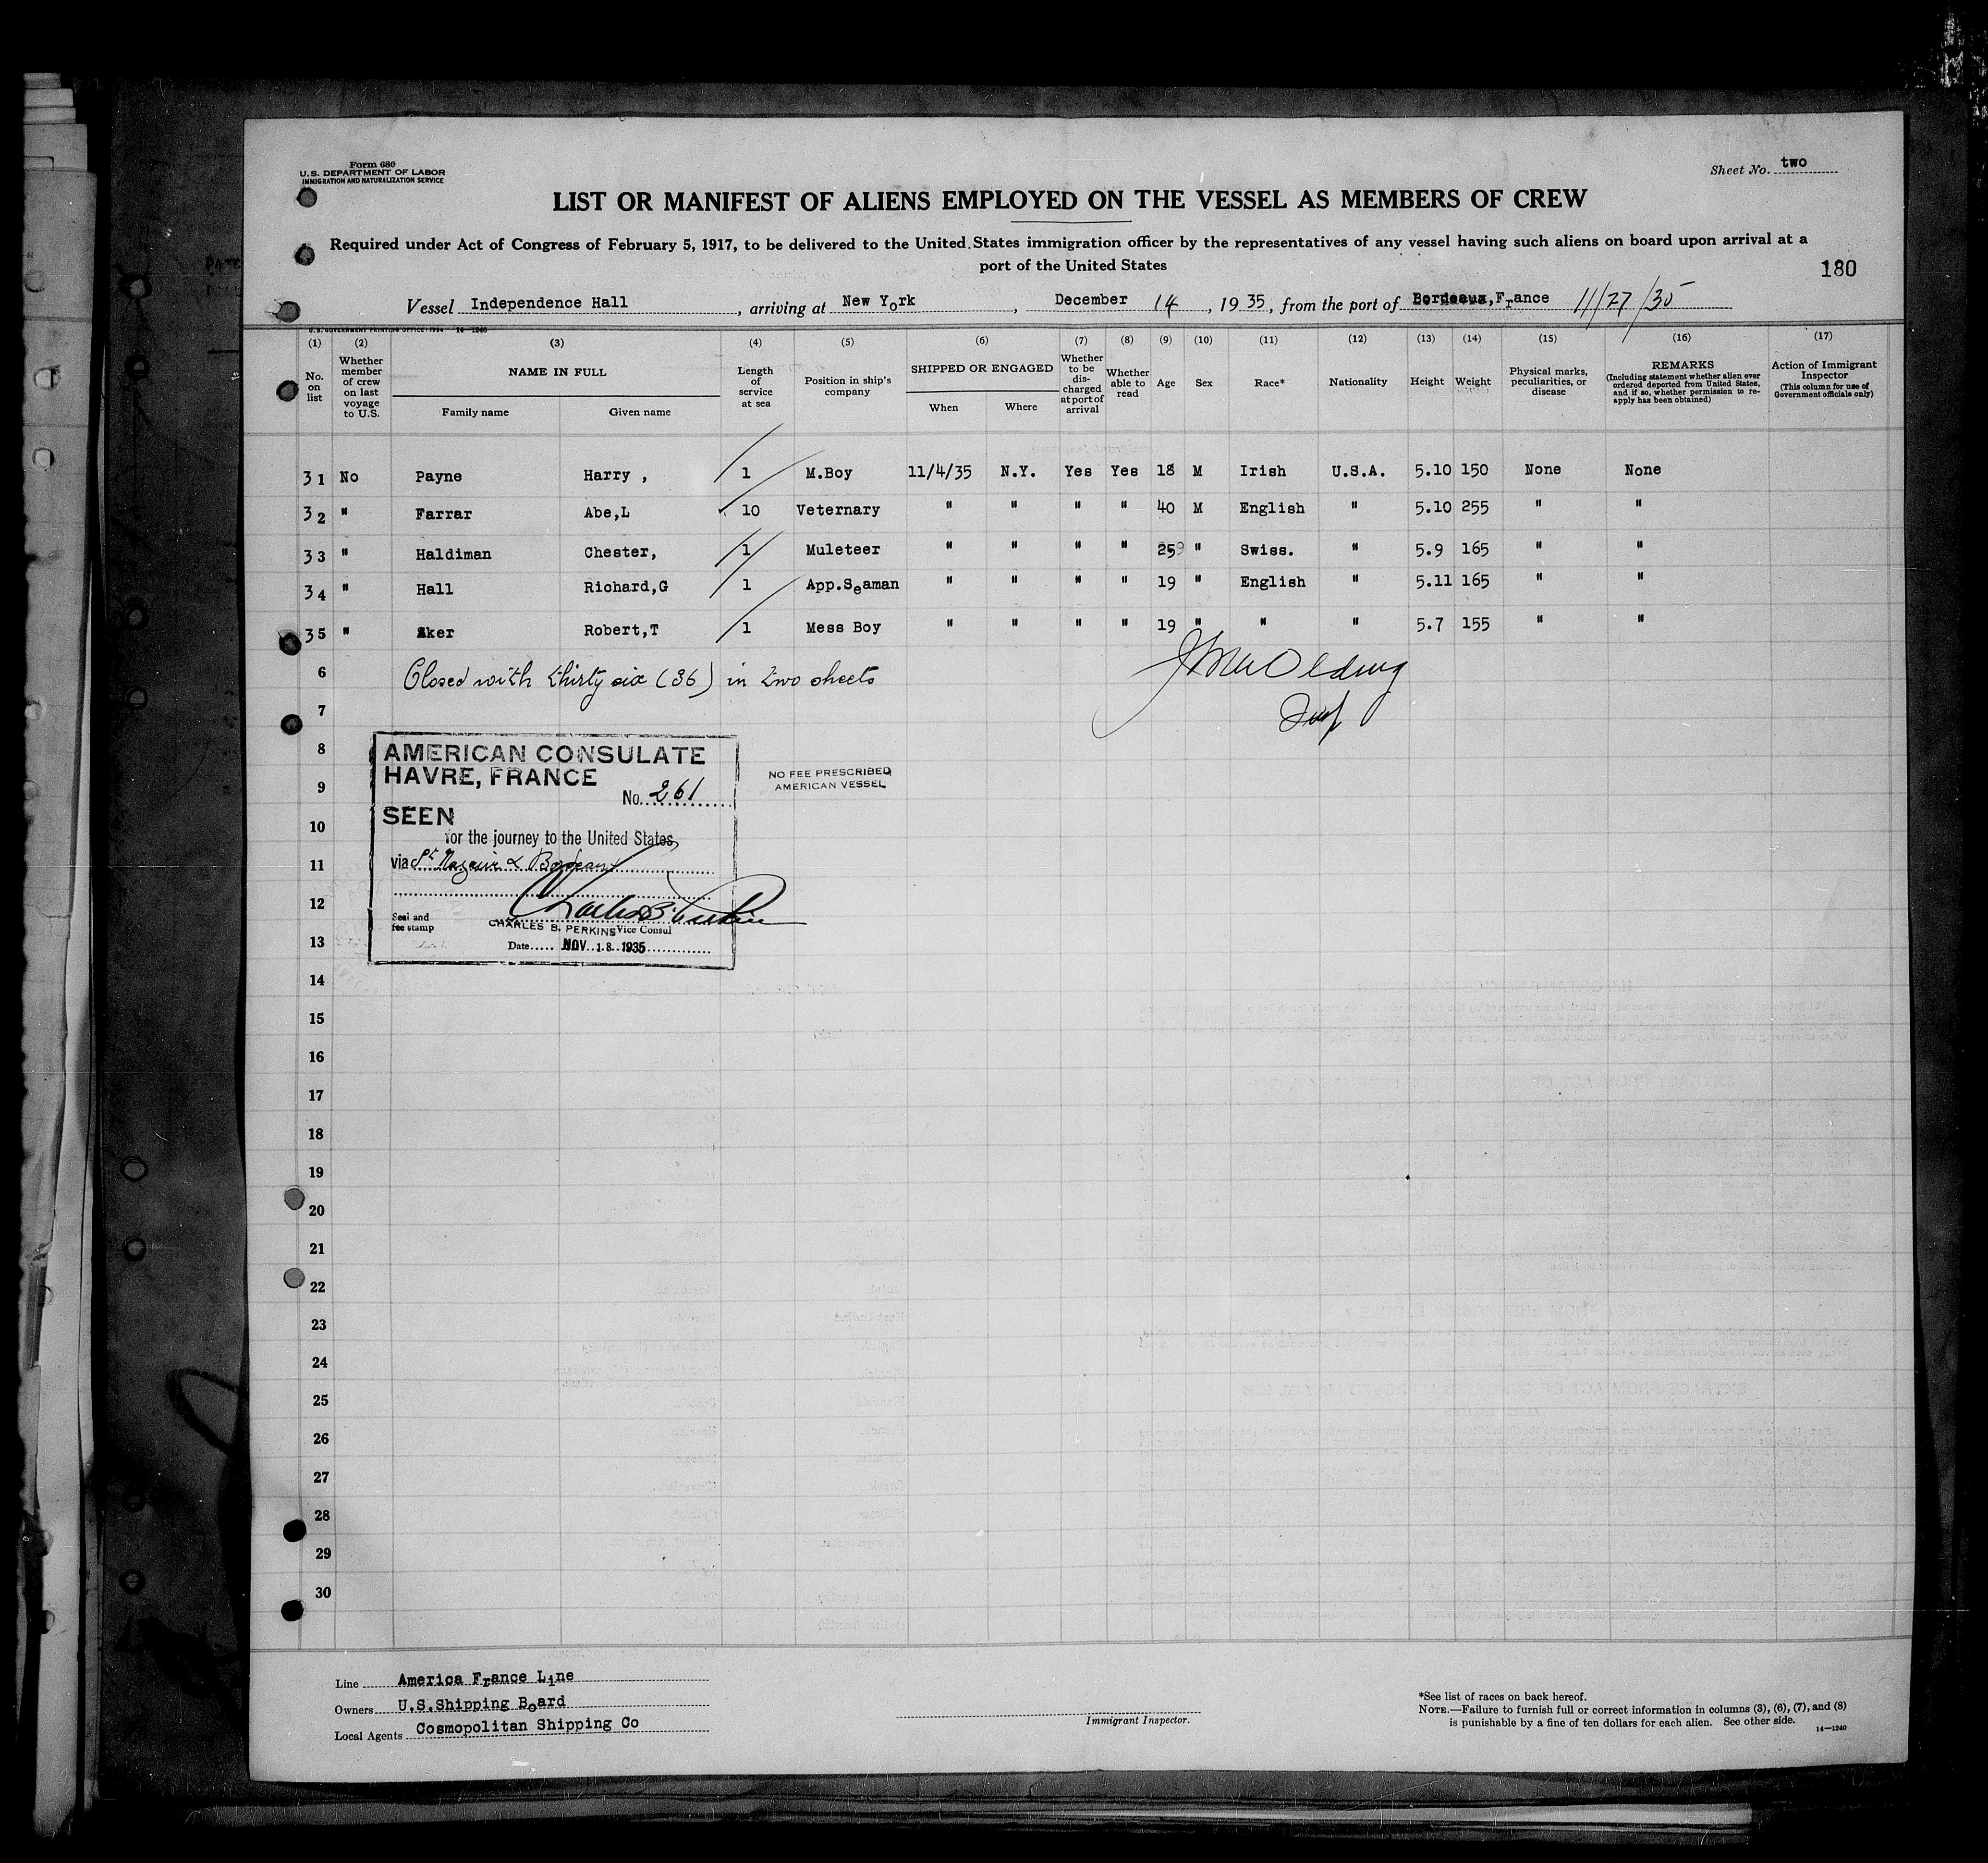 Form 680
U.S. DEPARTMENT OF LABOR
IMMIGRATION AND NATURALIZATION SERVICE
Sheet No. two
LIST OR MANIFEST OF ALIENS EMPLOYED ON THE VESSEL AS MEMBERS OF CREW
Required under Act of Congress of February 5, 1917, to be delivered to the United States immigration officer by the representatives of any vessel having such aliens on board upon arrival at a
port of the United States
180
Vessel Independence Hall, arriving at New York, December 14, 1935, from the port of Bordeaux, France 11/27/35
U.S. GOVERNMENT PRINTING OFFICE: 1934 14-1240
(1) (2) (3) (4) (5) (6) (7) (8) (9) (10) (11) (12) (13) (14) (15) (16) (17)
No. on list
Whether member of crew on last voyage to U.S.
NAME IN FULL
Family name
Given name
Length of service at sea
Position in ship's company
SHIPPED OR ENGAGED
When
Where
Whether to be discharged at port of arrival
Whether able to read
Age
Sex
Race*
Nationality
Height
Weight
Physical marks, peculiarities, or disease
REMARKS
(Including statement whether alien ever ordered deported from United States, and if so, whether permission to reapply has been obtained)
Action of Immigrant Inspector
(This column for use of Government officials only)
31 No Payne Harry , 1 M.Boy 11/4/35 N.Y. Yes Yes 18 M Irish U.S.A. 5.10 150 None None
32 " Farrar Abe,L 10 Veternary " " " " 40 M English " 5.10 255 " "
33 " Haldiman Chester, 1 Muleteer " " " " 25 " Swiss. " 5.9 165 " "
34 " Hall Richard,G 1 App.Seaman " " " " 19 " English " 5.11 165 " "
35 " Aker Robert,T 1 Mess Boy " " " " 19 " " " 5.7 155 " "
6 Closed with thirty six (36) in two sheets
7
8
9
10
11
12
13
14
15
16
17
18
19
20
21
22
23
24
25
26
27
28
29
30
AMERICAN CONSULATE
HAVRE, FRANCE
No. 261
SEEN
for the journey to the United States
via St Nazaire & Bordeaux
Seal and
fee stamp
CHARLES B. PERKINS Vice Consul
Date NOV 18 1935
NO FEE PRESCRIBED
AMERICAN VESSEL
Line America France Line
Owners U.S.Shipping Board
Local Agents Cosmopolitan Shipping Co
Immigrant Inspector.
*See list of races on back hereof.
NOTE.—Failure to furnish full or correct information in columns (3), (6), (7), and (8)
is punishable by a fine of ten dollars for each alien. See other side.
14—1240